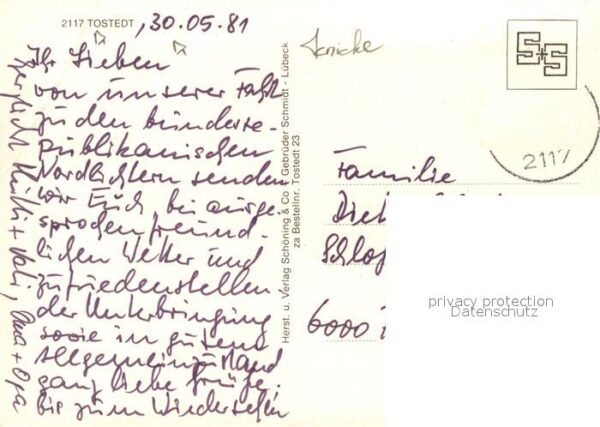 2117 TOSTEDT, 30.05.81
Ihr Lieben
von unserer Fahrt
zu den bundesre-
publikanischen
Nordlichtern senden
wir Euch bei ausge-
sprochen freund-
lichen Wetter und
zufriedenstellen-
der Unterbringung
sowie in gutem
Allgemeinzustand
ganz liebe Grüße,
bis zum Wiedersehen
herzlichst Mutti + Vati, Oma + Opa
Herst. u. Verlag Schöning & Co + Gebrüder Schmidt - Lübeck
za Bestellnr. Tostedt 23
S+S
2117
Familie
6000
privacy protection
Datenschutz